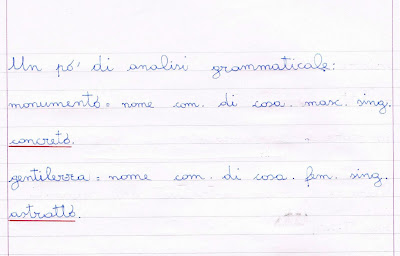 Un pó' di analisi grammaticale:
monumento = nome com. di cosa. masc. sing.
concreto.
gentilezza = nome com. di cosa. fem. sing.
astratto.